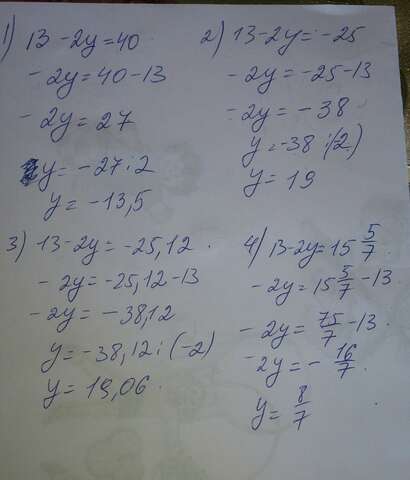 1) 13 - 2y = 40
- 2y = 40 - 13
- 2y = 27
y = - 27 : 2
y = - 13,5
2) 13 - 2y = -25
- 2y = -25 - 13
- 2y = - 38
y = -38 : (-2)
y = 19
3) 13 - 2y = -25,12.
- 2y = -25,12 - 13
- 2y = - 38,12
y = -38,12 : (-2)
y = 19,06.
4) 13 - 2y = 15 5/7.
- 2y = 15 5/7 - 13
- 2y = 75/7 - 13
- 2y = - 16/7.
y = 8/7